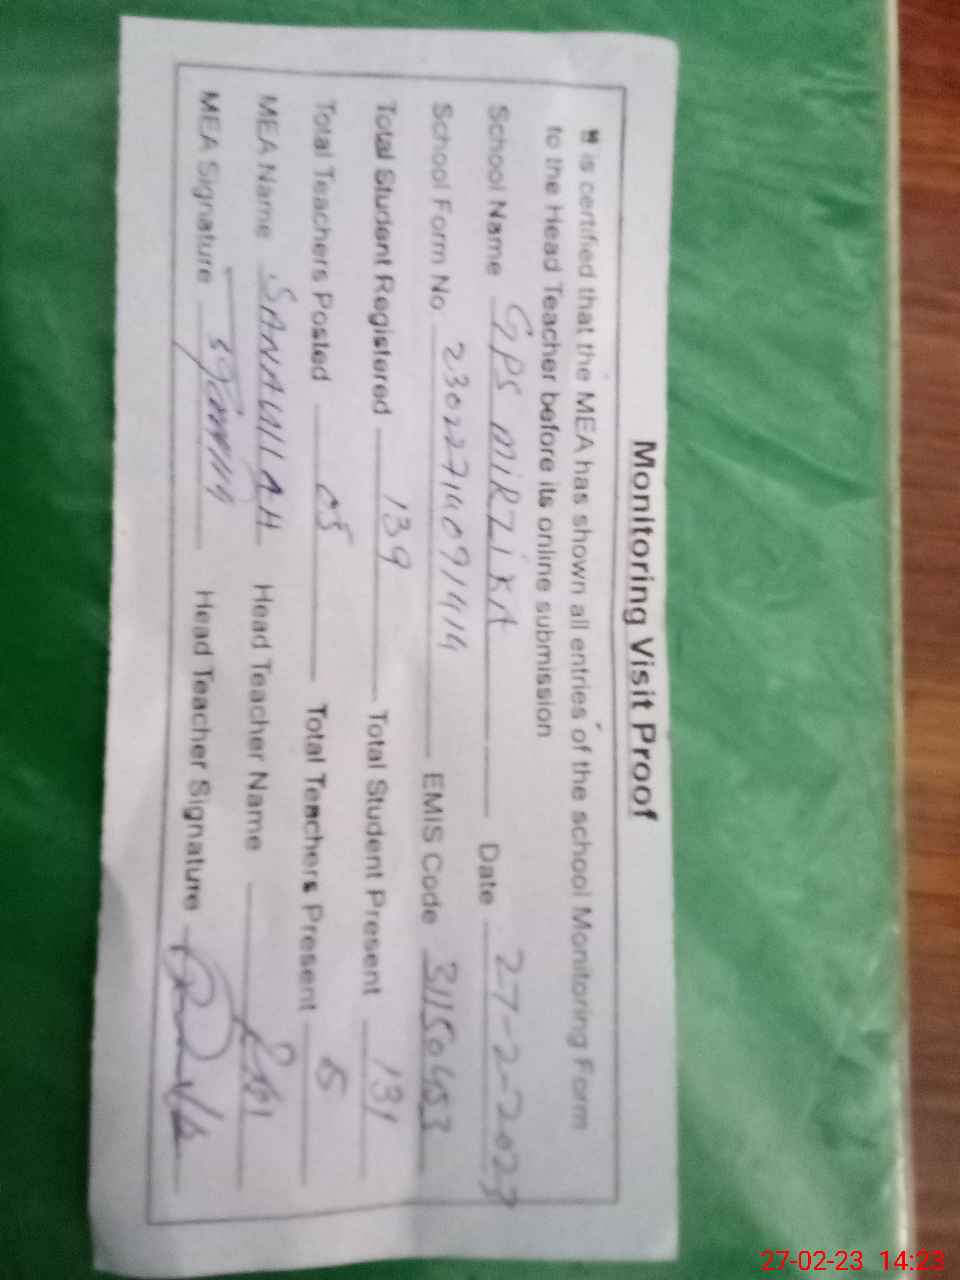 Monitoring Visit Proof
It is certified that the MEA has shown all entries of the school Monitoring Form
to the Head Teacher before its online submission
School Name GPS MIRZIKA Date 27-2-2023
School Form No 230227140791414 EMIS Code 31150453
Total Student Registered 139 Total Student Present 131
Total Teachers Posted 05 Total Teachers Present 5
MEA Name SANAULLAH Head Teacher Name
MEA Signature Head Teacher Signature
27-02-23 14:23